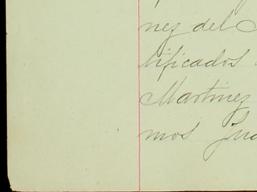 nez del
tificados
Martinez
mos